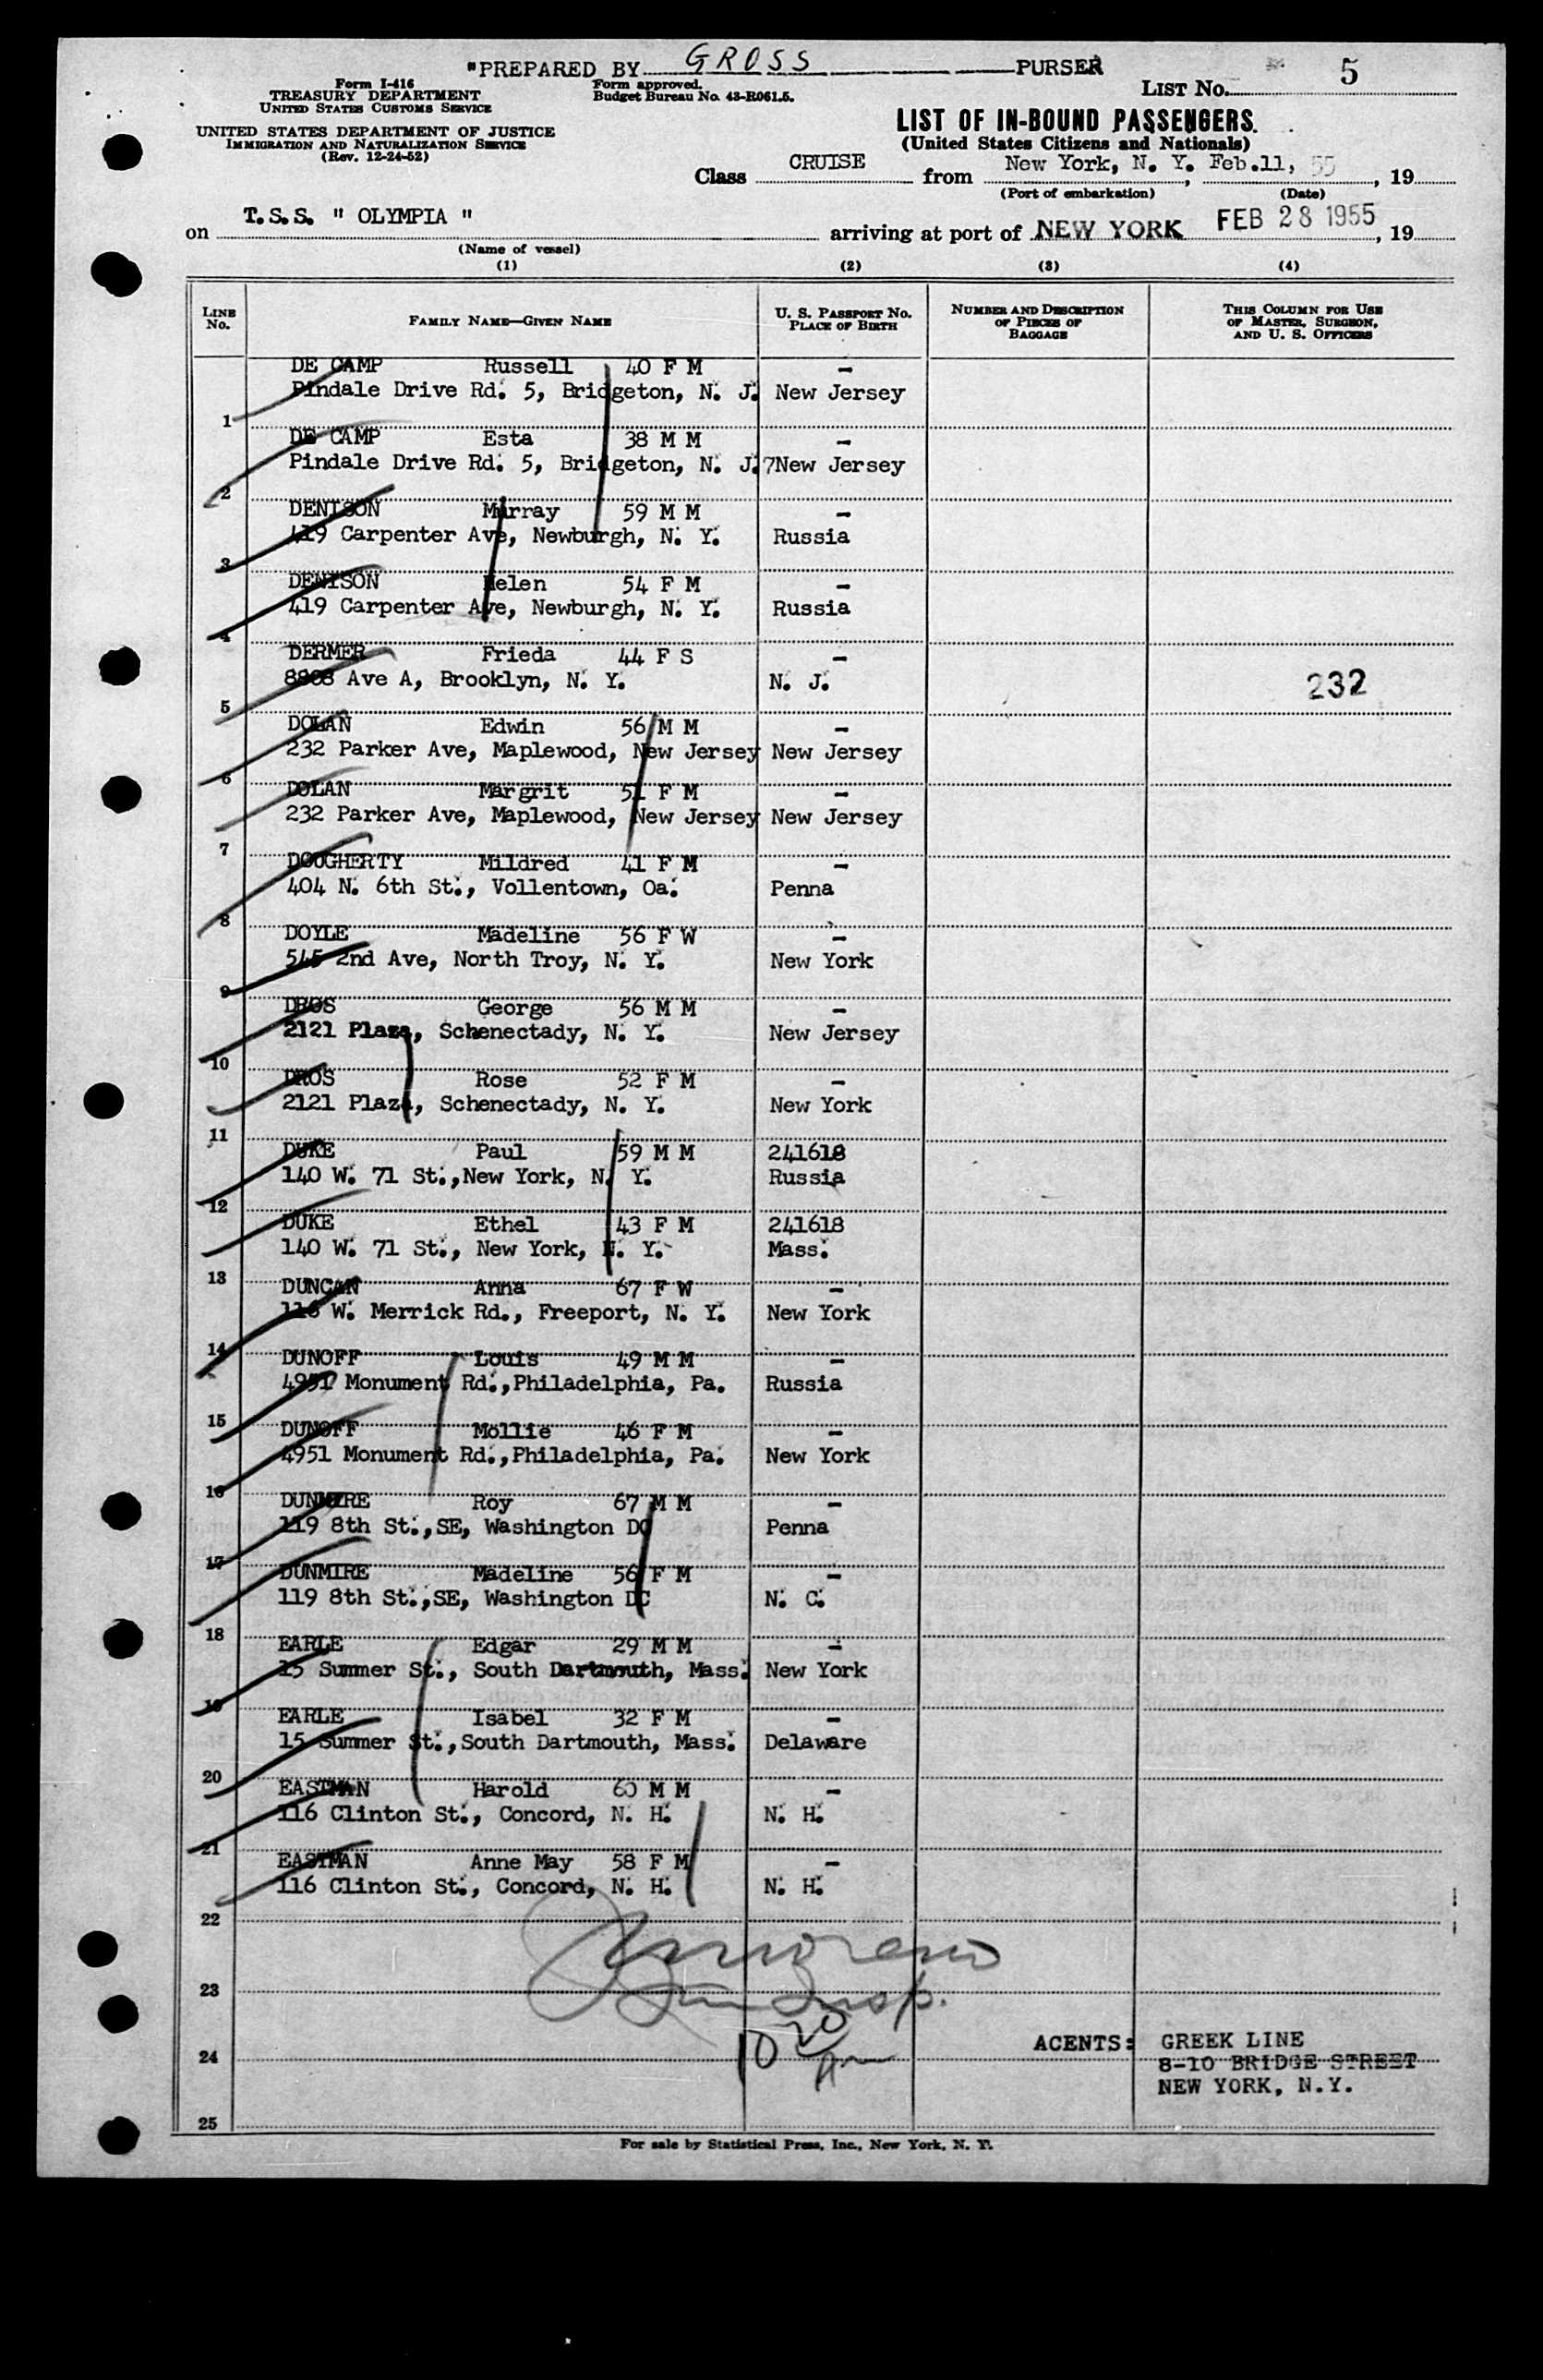 "PREPARED BY GROSS PURSER
Form I-416
TREASURY DEPARTMENT
UNITED STATES CUSTOMS SERVICE
Form approved.
Budget Bureau No. 43-R061.5.
LIST No. 5
UNITED STATES DEPARTMENT OF JUSTICE
IMMIGRATION AND NATURALIZATION SERVICE
(Rev. 12-24-52)
LIST OF IN-BOUND PASSENGERS
(United States Citizens and Nationals)
Class CRUISE from New York, N. Y. Feb.11, 55, 19
(Port of embarkation) (Date)
on T.S.S. " OLYMPIA " arriving at port of NEW YORK FEB 28 1955, 19
(Name of vessel)
(1) (2) (3) (4)
LINE No. FAMILY NAME—GIVEN NAME U. S. PASSPORT NO. PLACE OF BIRTH NUMBER AND DESCRIPTION OF PIECES OF BAGGAGE THIS COLUMN FOR USE OF MASTER, SURGEON, AND U. S. OFFICERS
DE CAMP Russell 40 F M -
1 Pindale Drive Rd. 5, Bridgeton, N. J. New Jersey
DE CAMP Esta 38 M M -
2 Pindale Drive Rd. 5, Bridgeton, N. J.7New Jersey
DENISON Murray 59 M M -
3 419 Carpenter Ave, Newburgh, N. Y. Russia
DENISON Helen 54 F M -
4 419 Carpenter Ave, Newburgh, N. Y. Russia
DERMER Frieda 44 F S -
5 8808 Ave A, Brooklyn, N. Y. N. J. 232
DOLAN Edwin 56 M M -
6 232 Parker Ave, Maplewood, New Jersey New Jersey
DOLAN Margrit 51 F M -
7 232 Parker Ave, Maplewood, New Jersey New Jersey
DOUGHERTY Mildred 41 F M -
8 404 N. 6th St., Vollentown, Oa. Penna
DOYLE Madeline 56 F W -
9 545 2nd Ave, North Troy, N. Y. New York
DROS George 56 M M -
10 2121 Plaza, Schenectady, N. Y. New Jersey
DROS Rose 52 F M -
11 2121 Plaza, Schenectady, N. Y. New York
DUKE Paul 59 M M 241618
12 140 W. 71 St.,New York, N. Y. Russia
DUKE Ethel 43 F M 241618
13 140 W. 71 St., New York, N. Y. Mass.
DUNCAN Anna 67 F W -
14 116 W. Merrick Rd., Freeport, N. Y. New York
DUNOFF Louis 49 M M -
15 4951 Monument Rd.,Philadelphia, Pa. Russia
DUNOFF Mollie 46 F M -
16 4951 Monument Rd.,Philadelphia, Pa. New York
DUNMIRE Roy 67 M M -
17 119 8th St.,SE, Washington DC Penna
DUNMIRE Madeline 56 F M -
18 119 8th St.,SE, Washington DC N. C.
EARLE Edgar 29 M M -
19 15 Summer St., South Dartmouth, Mass. New York
EARLE Isabel 32 F M -
20 15 Summer St.,South Dartmouth, Mass. Delaware
EASTMAN Harold 60 M M -
21 116 Clinton St., Concord, N. H. N. H.
EASTMAN Anne May 58 F M -
22 116 Clinton St., Concord, N. H. N. H.
23 Insp.
24 10 20
25
AGENTS: GREEK LINE
8-10 BRIDGE STREET
NEW YORK, N.Y.
For sale by Statistical Press, Inc., New York, N. Y.